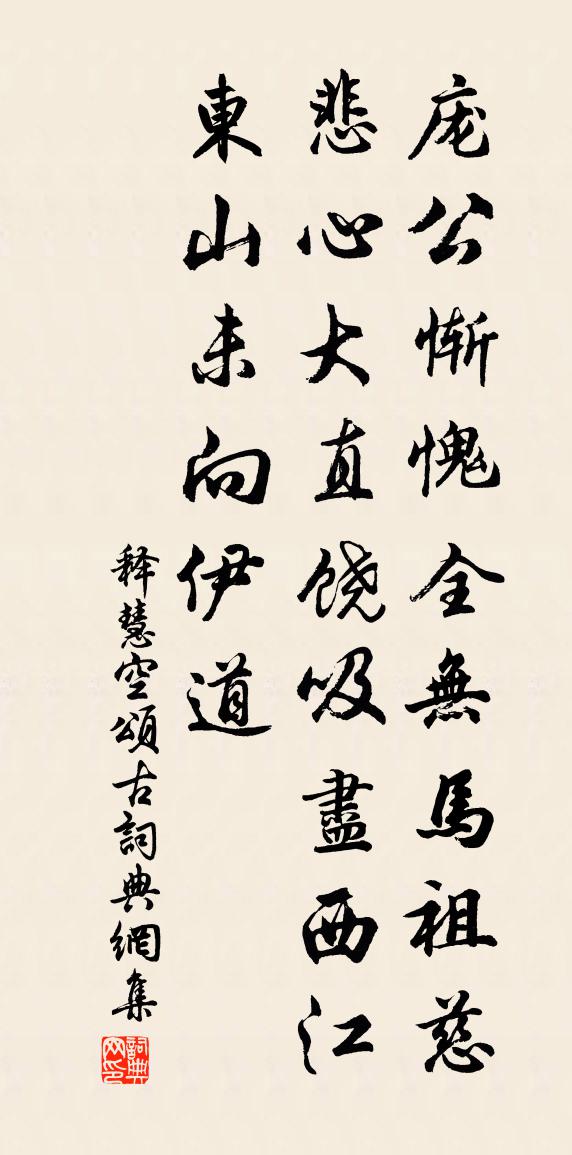 庞公惭愧全無馬祖慈
悲心大直饶吸盡西江
東山未向伊道
释慧空頌古詞典網集
詞典网印